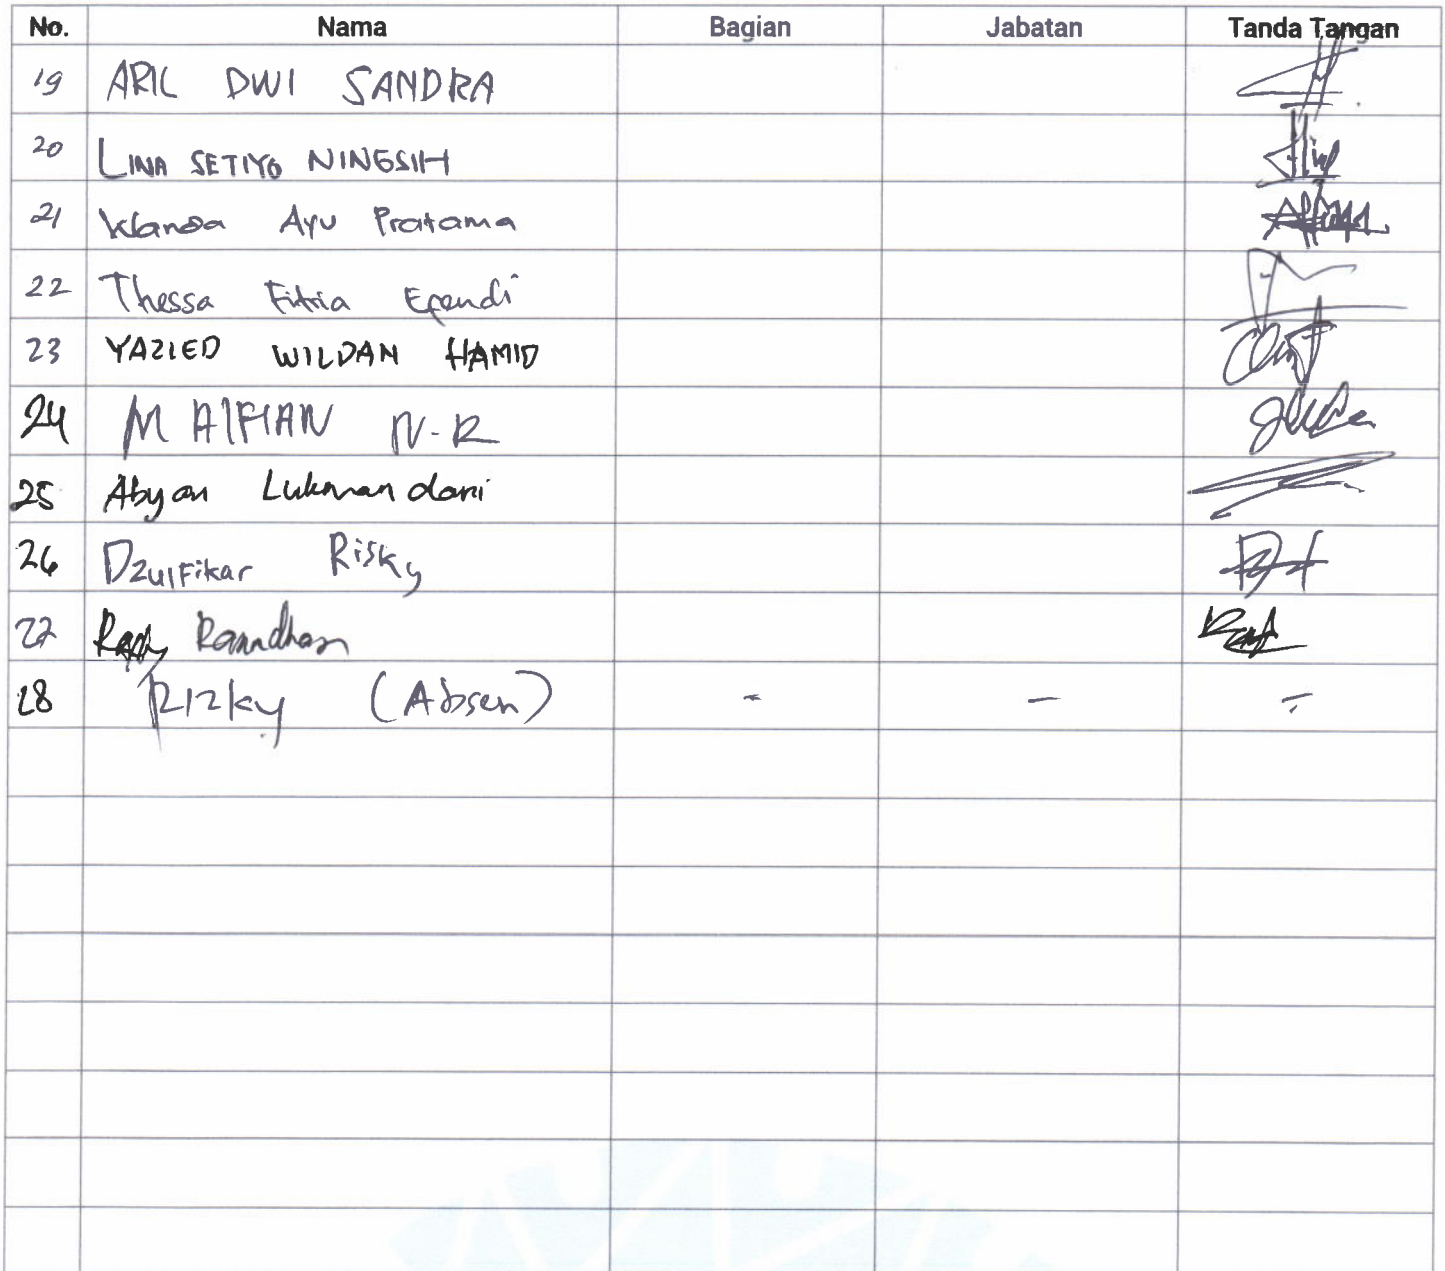 No. Nama Bagian Jabatan Tanda Tangan
19 ARIL DWI SANDRA
20 LINA SETIYO NINGSIH
21 Ayu Pratama
22 Thessa Fitria Efendi
23 YAZIED WILDAN HAMID
24 M AlFIAN N-R
25 Abyan Lukman dani
26 Dzulfikar Risky
27 Ramdhan
28 RIzky (Absen) - - -